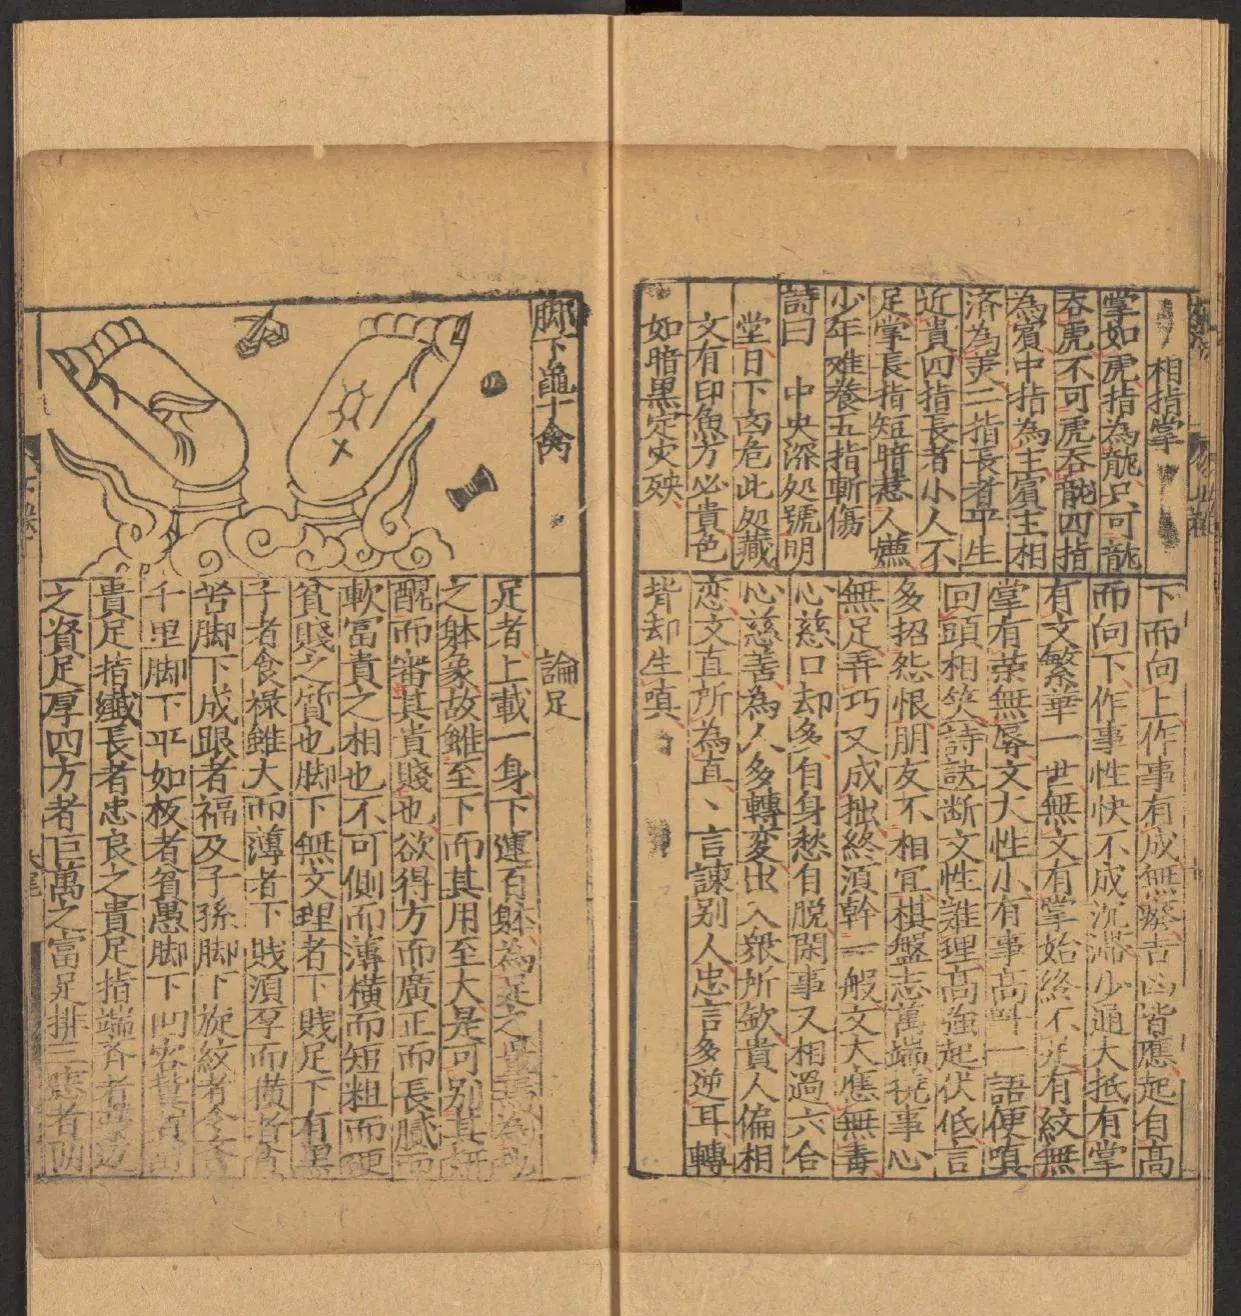 相指掌
掌如虎指為龍只可龍
吞虎不可虎吞龍四指
為賓中指為主賓主相
済為美二指長者平生
近貴四指長者小人不
足掌長指短暗惹人嫌
少年难養五指斬傷
詩曰 中央深处號明
堂日下凶危此处藏
文有印魚方必貴色
如暗黒定灾殃
下而向上作事有成無癈吉凶皆應起自高
而向下作事性快不成沉滞少通大抵有掌
有文繁華一世無文有掌始終不足有紋無
掌有荣無辱文大性小有事高呌一語便嗔
回頭相笑詩訣断文性難理高強起伏低言
多招怨恨朋友不相宜棋盤志萬端機事心
無足弄巧又成拙終湏幹一般文大應無毒
心慈口却多自身愁自脱閑事又相過六合
心慈善為人多轉変出入衆所欽貴人偏相
恋文直所為直丶言諫别人忠言多逆耳轉
背却生嗔
脚下龜十禽
論足
足者上載一身下運百躰為足之量
之躰象故雖至下而其用至大是可别其妍
醜而審其貴賤也欲得方而廣正而長膩而
軟富貴之相也不可側而薄橫而短粗而硬
貧賤之質也脚下無文理者下賤足下有黒
子者食禄雖大而薄者下賎湏厚而橫者貧
苦脚下成跟者福及子孫脚下旋紋者令
千里脚下平如板者貧愚脚下凹容
貴足指纎長者忠良之貴足指端齐者
之資足厚四方者巨萬之富足排三者